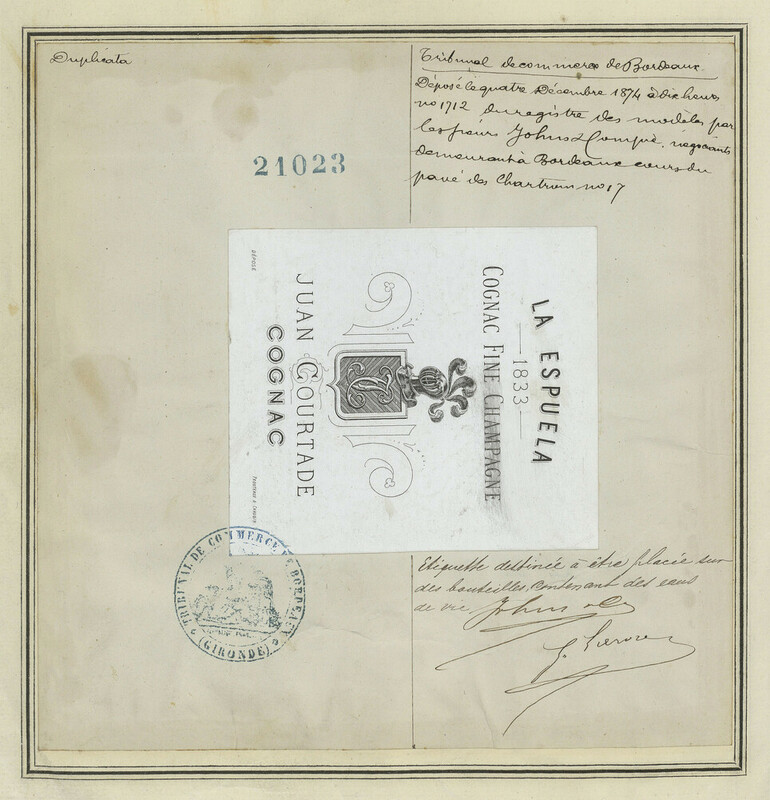 Duplicata
Tribunal de commerce de Bordeaux
Déposé le quatre Décembre 1874 à dix heures
no 1712 du registre des modèles par
les sieurs Johns & Compie. négociants
demeurant à Bordeaux cours du
pavé des Chartrons no 17
21023
LA ESPUELA
1833
COGNAC FINE CHAMPAGNE
JUAN COURTADE
COGNAC
DÉPOSÉ
TRIBUNAL DE COMMERCE DE BORDEAUX
(GIRONDE)
Etiquette destinée à être placée sur
des bouteilles, contenant des eaux
de vie
Johns & Co